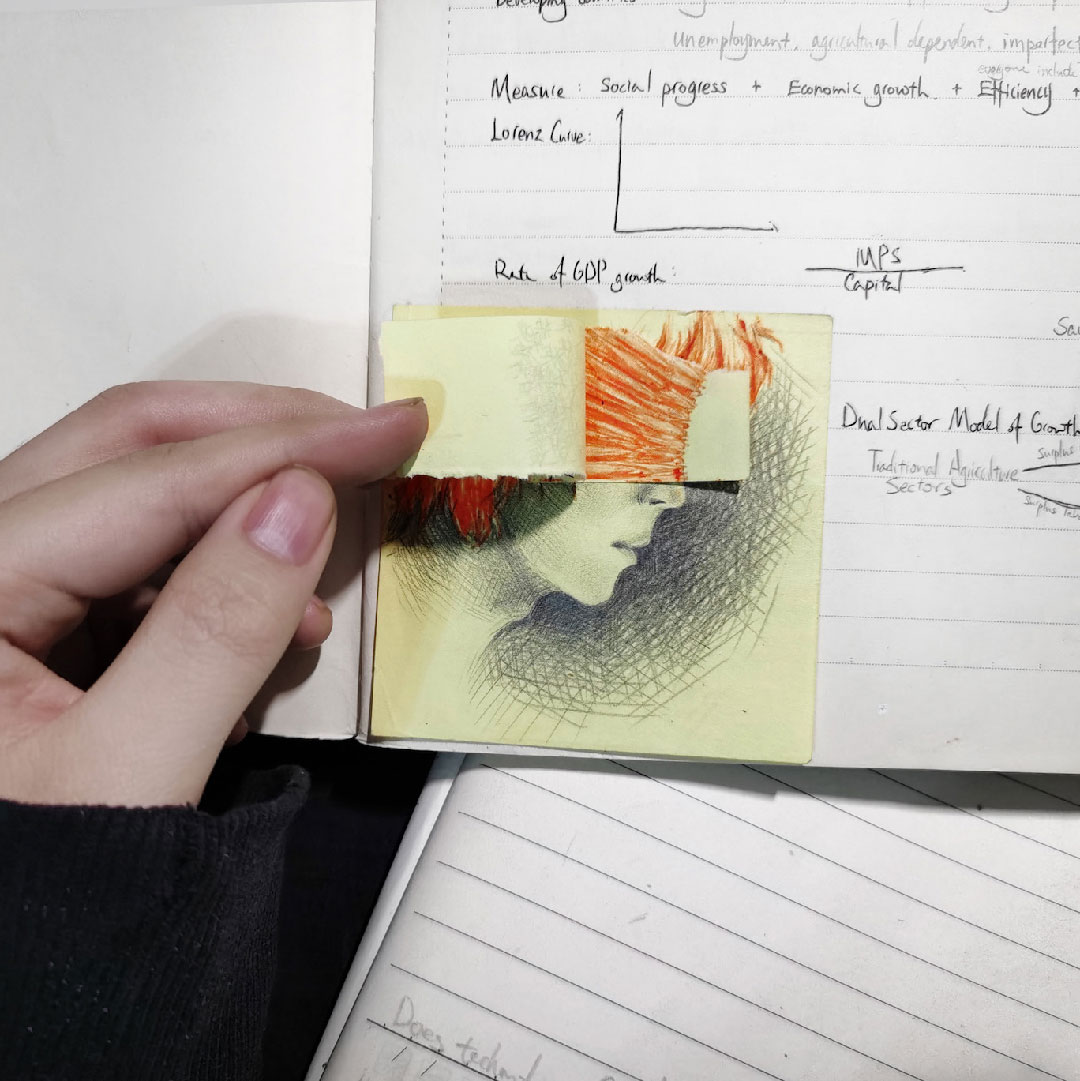 Developing
unemployment, agricultural dependent, imperfect
everyone include
Measure : Social progress + Economic growth + Efficiency +
Lorenz Curve:
MPS
Rate of GDP growth :
Capital
Dual Sector Model of Growth
surplus
Traditional Agriculture
Sectors
surplus
Does